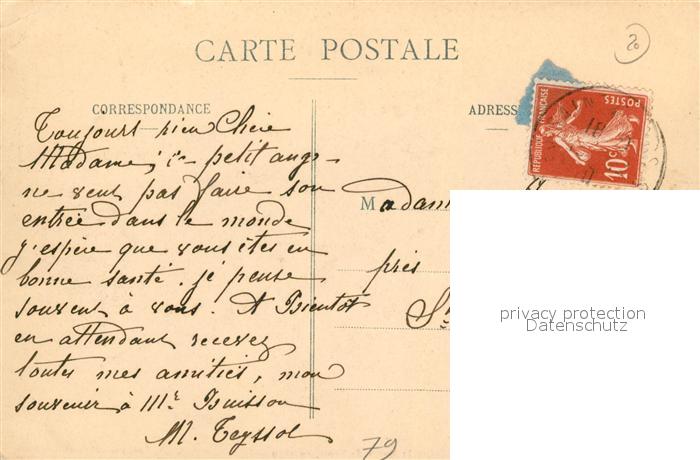 20
CARTE POSTALE
CORRESPONDANCE
ADRESS
REPUBLIQUE FRANÇAISE
POSTES
10c
Toujours rien Chère
Madame, le petit ange
ne veut pas faire son
entrée dans le monde
j'espère que vous êtes en
bonne santé. je pense
souvent à vous. A Bientot
en attendant recevez
toutes mes amitiés, mon
souvenir à Mr Buisson
M. Teyssot
Madam
près
St
79
privacy protection
Datenschutz